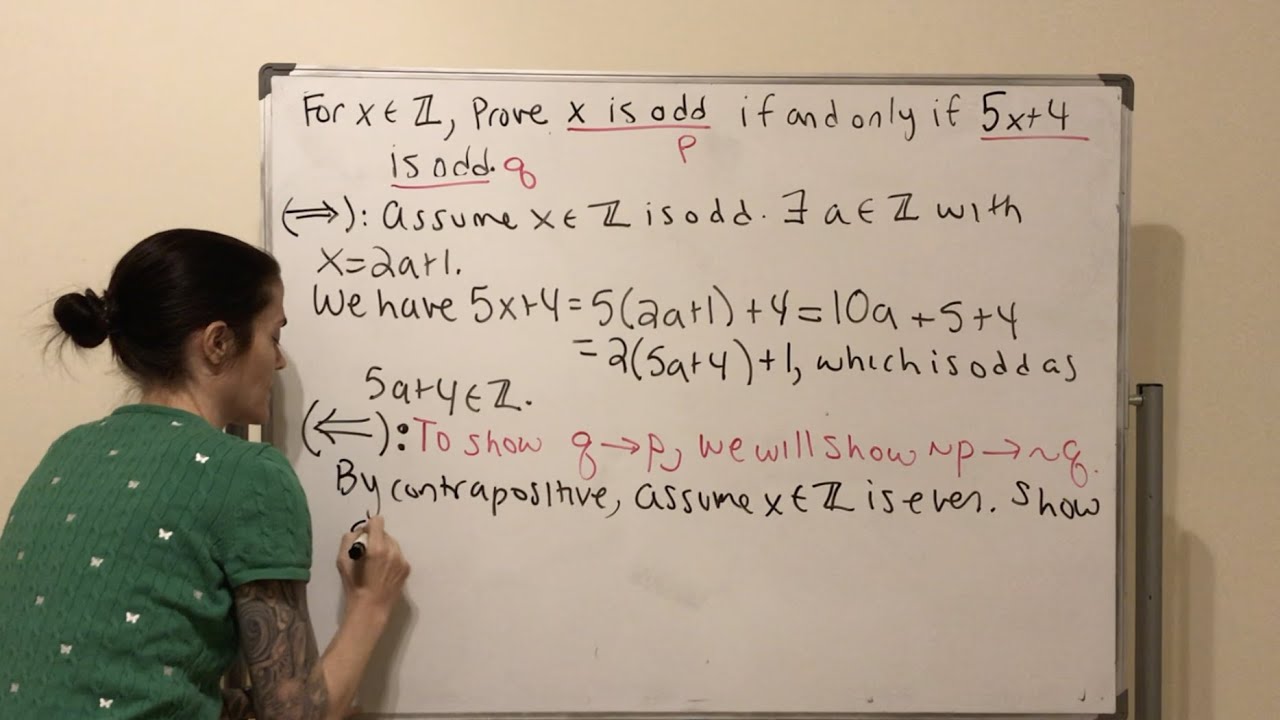 For x ∈ ℤ, Prove x is odd if and only if 5x+4
p
is odd. q
(⇒): Assume x ∈ ℤ is odd. ∃ a ∈ ℤ with
x=2a+1.
We have 5x+4=5(2a+1)+4=10a+5+4
=2(5a+4)+1, which is odd as
5a+4 ∈ ℤ.
(⇐): To show q→p, we will show ~p→~q.
By contrapositive, assume x ∈ ℤ is even. Show